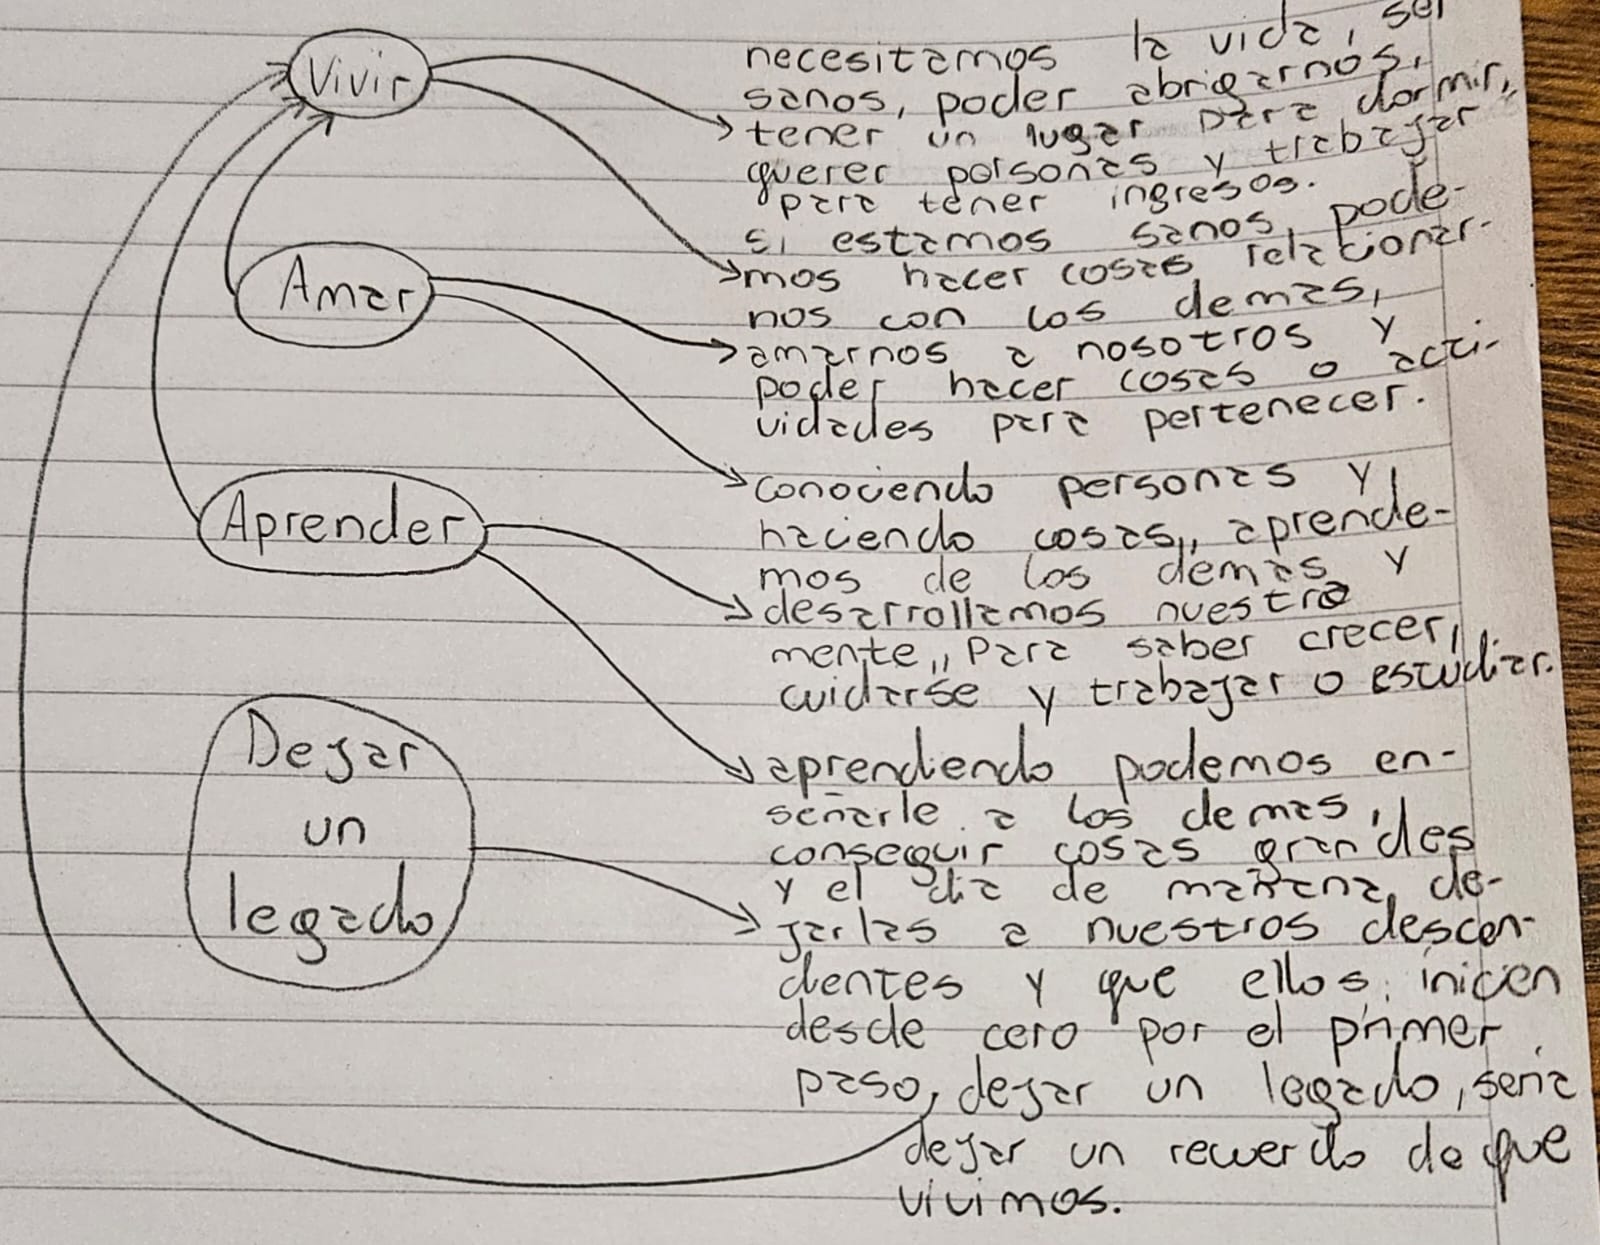 Vivir
necesitamos la vida, ser
sanos, poder abrigarnos,
tener un lugar para dormir,,
querer personas y trabajar
para tener ingresos.
Amar
si estamos sanos, pode-
mos hacer cosas relacionar-
nos con los demas,
amarnos a nosotros y
poder hacer cosas o acti-
vidades para pertenecer.
Aprender
conociendo personas y
haciendo cosas,, aprende-
mos de los demas y
desarrollamos nuestra
mente,, para saber crecer,
cuidarse y trabajar o estudiar.
Dejar
un
legado
aprendiendo podemos en-
señarle a los demas,
conseguir cosas grandes
y el dia de mañana, de-
jarlas a nuestros descen-
dientes y que ellos inicien
desde cero por el primer
paso, dejar un legado, seria
dejar un recuerdo de que
vivimos.